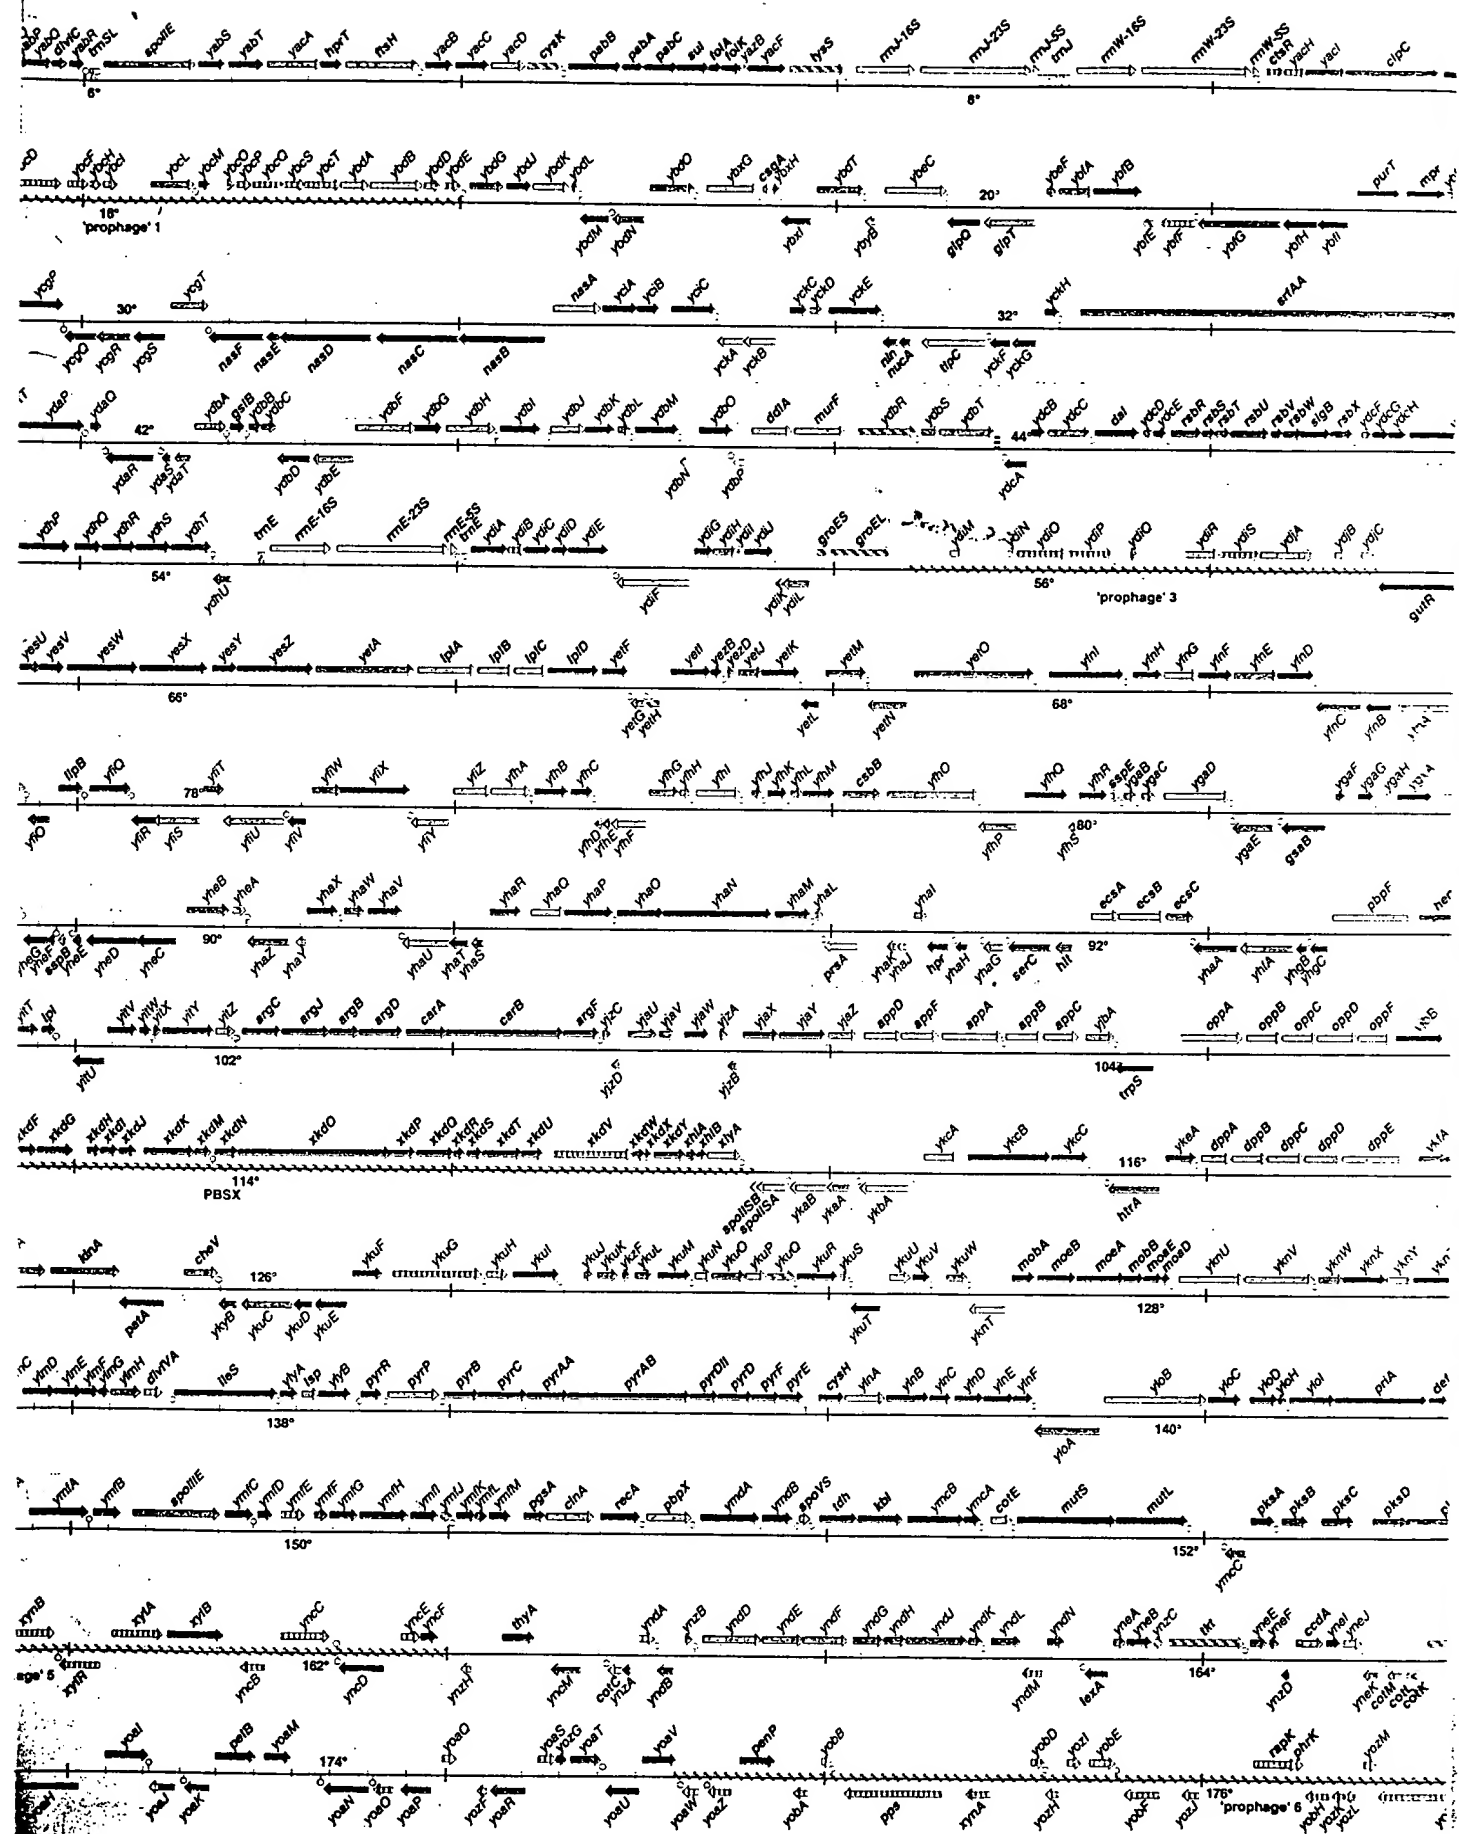 yabP yabQ divIC yabR trnSL spoIIE yabS yabT yacA hprT ftsH yacB yacC yacD cysK pabB pabA pabC sul folA folK yazB yacF lysS rrnJ-16S rrnJ-23S rrnJ-5S trnJ rrnW-16S rrnW-23S rrnW-5S ctsR yacH yacI clpC
6° 8°
ybcF ybcH ybcI ybcL ybcM ybcO ybcP ybcQ ybcS ybcT ybdA ybdB ybdD ybdE ybdG ybdJ ybdK ybdL ybdO ybxG csgA ybxH ybdT ybeC ybeF ybfA ybfB purT mpr
18° 20°
'prophage' 1
ybdM ybdN ybxI ybyB glpQ glpT ybfE ybfF ybfG ybfH ybfI
ycgP ycgT nasA yciA yciB yciC yckC yckD yckE yckH srfAA
30° 32°
ycgQ ycgR ycgS nasF nasE nasD nasC nasB yckA yckB nin nucA tlpC yckF yckG
ydaP ydaQ ydbA gsiB ydbB ydbC ydbF ydbG ydbH ydbI ydbJ ydbK ydbL ydbM ydbO ddlA murF ydbR ydbS ydbT ydcB ydcC dal ydcD ydcE rsbR rsbS rsbT rsbU rsbV rsbW sigB rsbX ydcF ydcG ydcH
42° 44°
ydaR ydaS ydaT ydbD ydbE ydbN ydbP ydcA
ydhP ydhQ ydhR ydhS ydhT trnE rrnE-16S rrnE-23S rrnE-5S trnE ydiA ydiB ydiC ydiD ydiE ydiG ydiH ydiI ydiJ groES groEL ydiM ydiN ydiO ydiP ydiQ ydiR ydiS ydjA ydjB ydjC
54° 56°
'prophage' 3
ydhU ydiF ydiK ydiL gutR
yesU yesV yesW yesX yesY yesZ yetA lplA lplB lplC lplD yetF yetI yezB yezD yetJ yetK yetM yetO yfnI yfnH yfnG yfnF yfnE yfnD
66° 68°
yetG yetH yetL yetN yfnC yfnB yfnA
lipB yfiQ yfiT yfiW yfiX yfiZ yfhA yfhB yfhC yfhG yfhH yfhI yfhJ yfhK yfhL yfhM csbB yfhO yfhQ yfhR sspE ygaB ygaC ygaD ygaF ygaG ygaH
78° 80°
yfiO yfiR yfiS yfiU yfiV yfiY yfhD yfhE yfhF yfhP yfhS ygaE gsaB
yheB yheA yhaX yhaW yhaV yhaR yhaQ yhaP yhaO yhaN yhaM yhaL yhaI ecsA ecsB ecsC pbpF
90° 92°
yheG yheF sspB yheE yheD yheC yhaZ yhaY yhaU yhaT yhaS prsA yhaK yhaJ hpr yhaH yhaG serC hit yhaA yhfA yhgB yhgC
yitT ipi yitV yitW yitX yitY yitZ argC argJ argB argD carA carB argF yjzC yjaU yjaV yjaW yjzA yjaX yjaY yjaZ appD appF appA appB appC yjbA oppA oppB oppC oppD oppF
102° 104°
yitU yjzD yjzB trpS
xkdF xkdG xkdH xkdI xkdJ xkdK xkdM xkdN xkdO xkdP xkdQ xkdR xkdS xkdT xkdU xkdV xkdW xkdX xkdY xhlA xhlB xlyA ykcA ykcB ykcC ykeA dppA dppB dppC dppD dppE ykfA
114° 116°
PBSX
spoIISB spoIISA ykaB ykaA ykbA htrA
kinA cheV ykuF ykuG ykuH ykuI ykuJ ykuK ykzF ykuL ykuM ykuN ykuO ykuP ykuQ ykuR ykuS ykuU ykuV ykuW mobA moeB moeA mobB moaE moaD yknU yknV yknW yknX yknY
126° 128°
patA ykyB ykuC ykuD ykuE ykuT yknT
ylmD ylmE ylmF ylmG ylmH divIVA ileS ylyA lsp ylyB pyrR pyrP pyrB pyrC pyrAA pyrAB pyrDII pyrD pyrF pyrE cysH ylnA ylnB ylnC ylnD ylnE ylnF yloB yloC yloD yloH yloI priA def
138° 140°
yloA
ymfA ymfB spoIIIE ymfC ymfD ymfE ymfF ymfG ymfH ymfI ymfJ ymfK ymfL ymfM pgsA cinA recA pbpX ymdA ymdB spoVS tdh kbl ymcB ymcA cotE mutS mutL pksA pksB pksC pksD
150° 152°
ymcC
xynB xylA xylB yncC yncE yncF thyA yndA ynzB yndD yndE yndF yndG yndH yndJ yndK yndL yndN yneA yneB ynzC tkt yneE yneF ccdA yneI yneJ
age' 5 162° 164°
xylR yncB yncD ynzH yncM cotC ynzA yndB yndM lexA ynzD yneK cotM cotL cotK
yoaI pelB yoaM yoaQ yoaS yozG yoaT yoaV penP yobB yobD yozI yobE rapK phrK yozM
174° 176°
'prophage' 6
yoaH yoaJ yoaK yoaN yoaO yoaP yozF yoaR yoaU yoaW yoaZ yobA pps xynA yozH yobF yozJ yobH yozK yozL